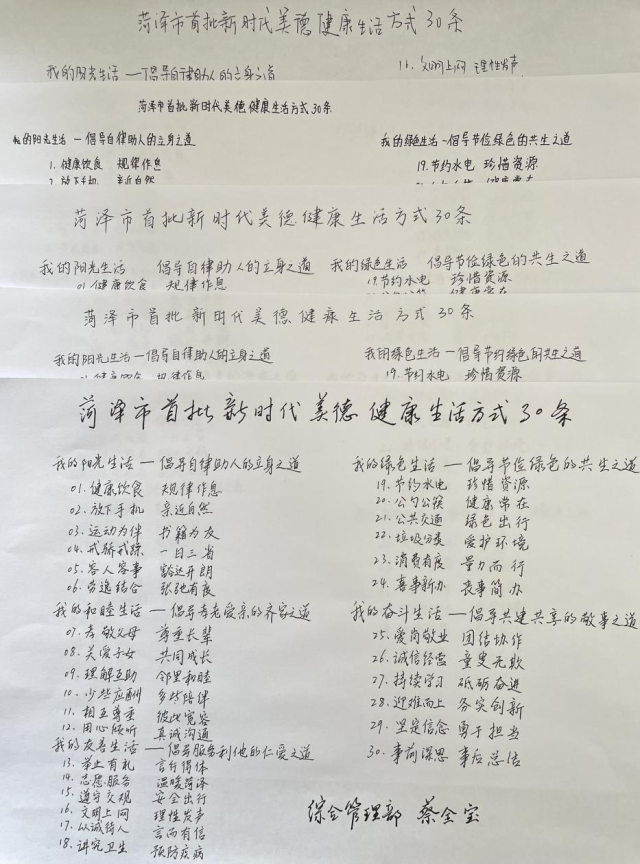 菏泽市首批新时代美德健康生活方式30条
我的阳光生活 — 倡导自律助人的立身之道
11. 文明上网 理性发声
菏泽市首批新时代美德健康生活方式30条
我的阳光生活 — 倡导自律助人的立身之道
1. 健康饮食 规律作息
2. 放下手机 亲近自然
我的绿色生活 - 倡导节俭绿色的共生之道
19. 节约水电 珍惜资源
菏泽市首批新时代美德健康生活方式30条
我的阳光生活 倡导自律助人的立身之道
01. 健康饮食 规律作息
我的绿色生活 倡导节俭绿色的共生之道
19. 节约水电 珍惜资源
菏泽市首批新时代美德健康生活方式30条
我的阳光生活 — 倡导自律助人的立身之道
我的绿色生活 — 倡导节约绿色的共生之道
19. 节约水电 珍惜资源
菏泽市首批新时代美德健康生活方式30条
我的阳光生活 — 倡导自律助人的立身之道
01. 健康饮食 规律作息
02. 放下手机 亲近自然
03. 运动为伴 书籍为友
04. 戒骄戒躁 一日三省
05. 容人容事 豁达开朗
06. 劳逸结合 张弛有度
我的和睦生活 — 倡导孝老爱亲的齐家之道
07. 孝敬父母 尊重长辈
08. 关爱子女 共同成长
09. 理解互助 邻里和睦
10. 少些应酬 多些陪伴
11. 相互尊重 彼此宽容
12. 用心倾听 真诚沟通
我的友善生活 — 倡导服务利他的仁爱之道
13. 举止有礼 言行得体
14. 志愿服务 温暖菏泽
15. 遵守交规 安全出行
16. 文明上网 理性发声
17. 以诚待人 言而有信
18. 讲究卫生 预防疾病
我的绿色生活 — 倡导节俭绿色的共生之道
19. 节约水电 珍惜资源
20. 公勺公筷 健康常在
21. 公共交通 绿色出行
22. 垃圾分类 爱护环境
23. 消费有度 量力而行
24. 喜事新办 丧事简办
我的奋斗生活 — 倡导共建共享的敬事之道
25. 爱岗敬业 团结协作
26. 诚信经营 童叟无欺
27. 持续学习 砥砺奋进
28. 迎难而上 务实创新
29. 坚定信念 勇于担当
30. 事前深思 事后总结
综合管理部 蔡全宝